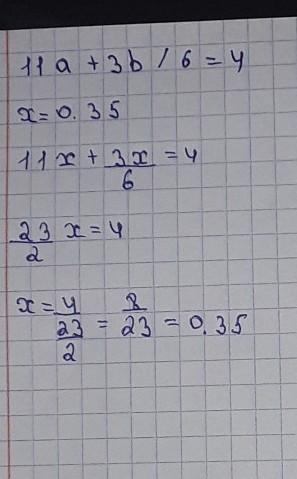 11a + 3b / 6 = 4
x = 0.35
11x + 3x/6 = 4
23/2 x = 4
x = 4/(23/2) = 8/23 = 0.35